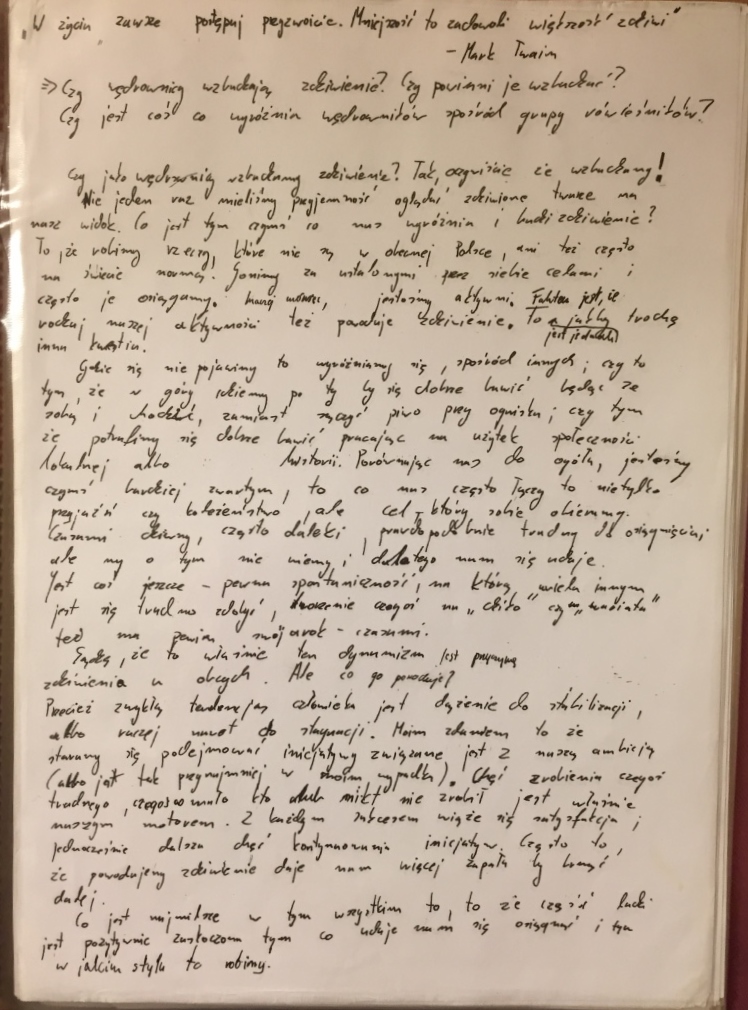 „W życiu zawsze postępuj przyzwoicie. Mniejszość to zachowski większość zdziwi"
– Mark Twain
=> Czy wędrownicy wzbudzają zdziwienie? Czy powinni je wzbudzać?
Czy jest coś co wyróżnia wędrowników spośród grupy rówieśników?
Czy jako wędrownicy wzbudzamy zdziwienie? Tak, oczywiście że wzbudzamy!
Nie jeden raz mieliśmy przyjemność oglądać zdziwione twarze na
nasz widok. Co jest tym czymś co nas wyróżnia i budzi zdziwienie?
To, że robimy rzeczy, które nie są w obecnej Polsce, ani też często
na świecie normą. Gonimy za ustalonymi przez siebie celami i
często je osiągamy. Inaczej mówiąc, jesteśmy aktywni. Faktem jest, że
rodzaj naszej aktywności też powoduje zdziwienie. To jest jednak trochę
inna kwestia.
Gdzie się nie pojawimy to wyróżniamy się, spośród innych; czy to
tym, że w góry idziemy po to by się dobrze bawić będąc ze
sobą i chodzić, zamiast sączyć piwo przy ognisku; czy tym
że potrafimy się dobrze bawić pracając na użytek społeczności
lokalnej albo historii. Porównując nas do ogółu, jesteśmy
czymś bardziej zwartym, to co nas często łączy to nietylko
przyjaźń czy koleżeństwo, ale cel, który sobie obieramy.
Czasami dziwny, często daleki, prawdopodobnie trudny do osiągnięcia,
ale my o tym nie wiemy i dlatego nam się udaje.
Jest coś jeszcze – pewna spontaniczność, na którą wielu innym
jest się trudno zdobyć, tworzenie czegoś na „dziko" czy „wariata"
też ma pewien swój urok – czasami.
Sądzę, że to właśnie ten dynamizm jest przyczyną
zdziwienia u obcych. Ale co go powoduje?
Przecież zwykłą tendencją człowieka jest dążenie do stabilizacji,
albo raczej nawet do stagnacji. Moim zdaniem to że
staramy się podejmować inicjatywy związane jest z naszą ambicją
(albo jest tak przynajmniej w moim wypadku). Chęć zrobienia czegoś
trudnego, czegoś co mało kto albo nikt nie zrobił jest właśnie
naszym motorem. Z każdym sukcesem wiąże się satysfakcja i
jednocześnie dalsza chęć kontynuowania inicjatyw. Często to,
że powodujemy zdziwienie daje nam więcej zapału by brnąć
dalej.
Co jest najmilsze w tym wszystkim to, to że część ludzi
jest pozytywnie zaskoczona tym co udaje nam się osiągnąć i tym
w jakim stylu to robimy.